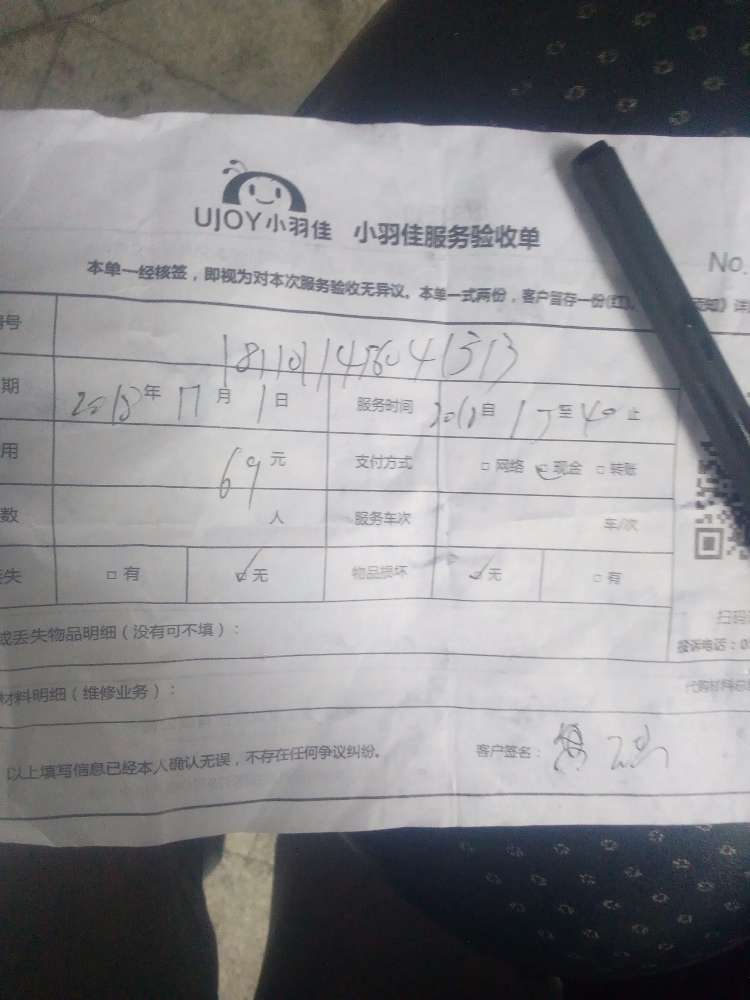 UJOY小羽佳 小羽佳服务验收单
No.
本单一经核签，即视为对本次服务验收无异议。本单一式两份，客户留存一份(红)。 须知》详
号 1811011456041313
期 2018年11月1日 服务时间 自 至 40 止
用 69元 支付方式 □网络 ☑现金 □转账
数 人 服务车次 车/次
失 □有 ☑无 物品损坏 ☑无 □有
扫码
或丢失物品明细（没有可不填）：
投诉电话：0
材料明细（维修业务）：
代购材料
以上填写信息已经本人确认无误，不存在任何争议纠纷。 客户签名：